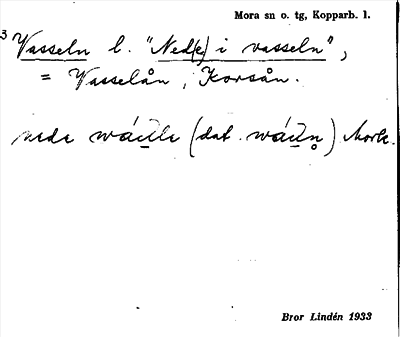 Mora sn o. tg, Kopparb. l.
3 Vasseln l. "Ned(e) i vasseln",
= Vasselån, Korsån.
nede (dat.
Bror Lindén 1933